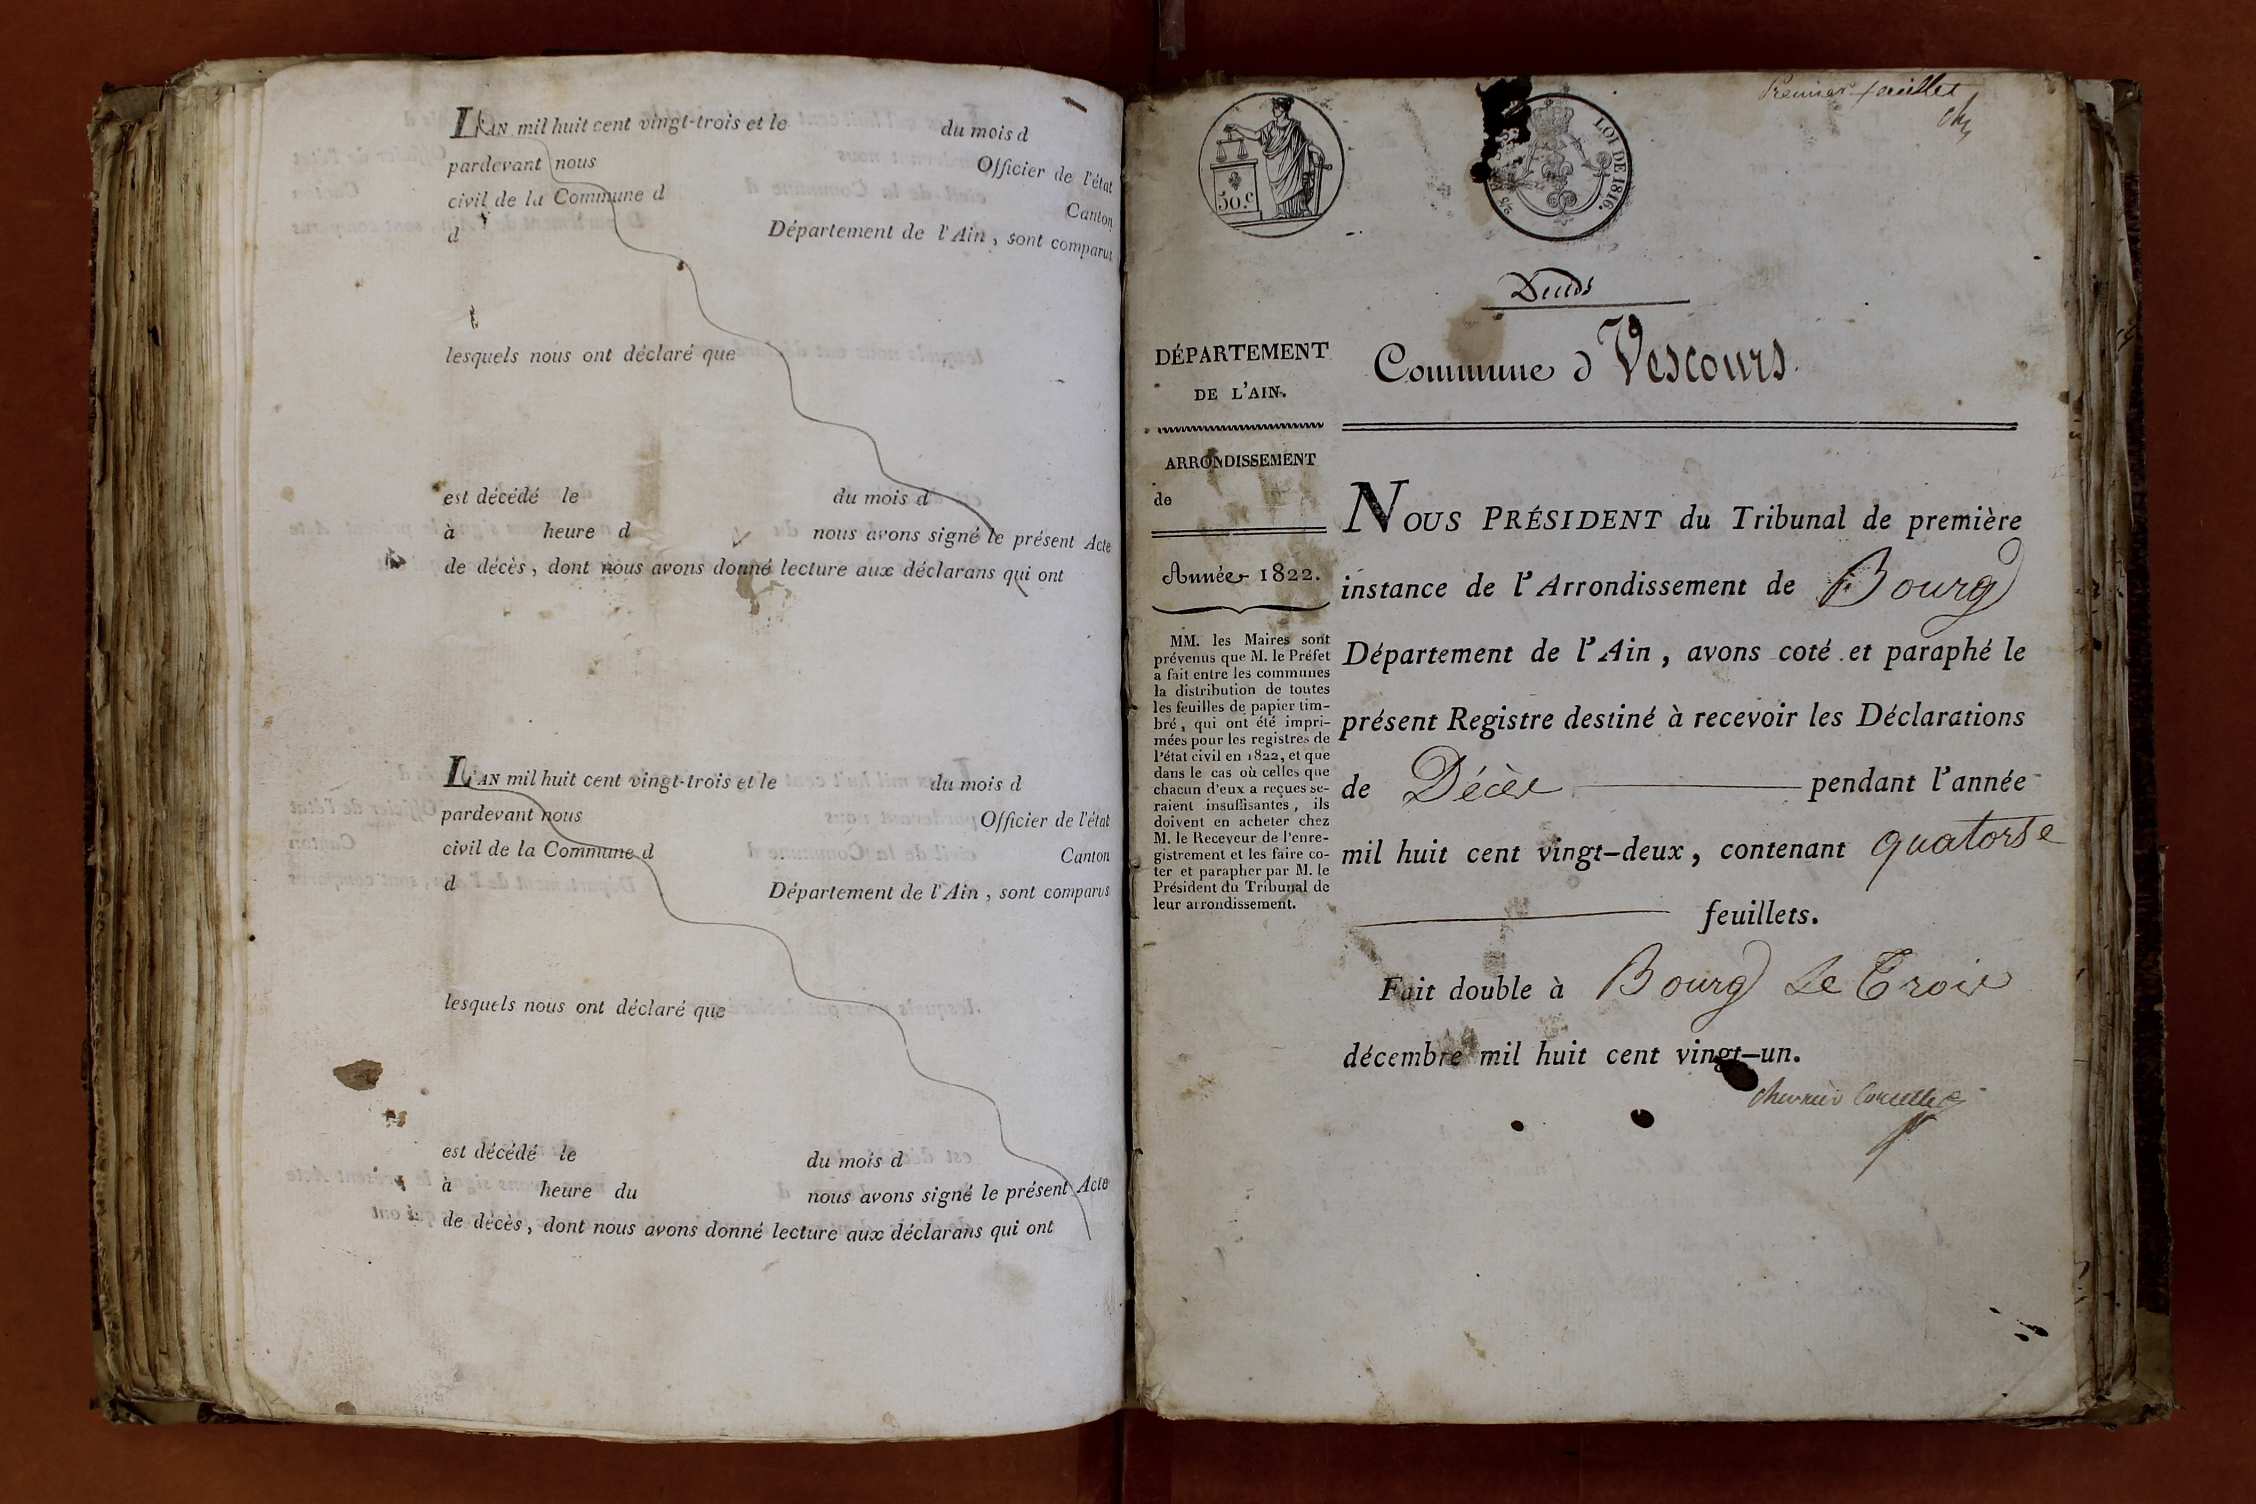 L'AN mil huit cent vingt-trois et le du mois d
pardevant nous Officier de l'état
civil de la Commune d Canton
d Département de l'Ain, sont comparus
lesquels nous ont déclaré que
est décédé le du mois d
à heure d nous avons signé le présent Acte
de décès, dont nous avons donné lecture aux déclarans qui ont
L'AN mil huit cent vingt-trois et le du mois d
pardevant nous Officier de l'état
civil de la Commune d Canton
d Département de l'Ain, sont comparus
lesquels nous ont déclaré que
est décédé le du mois d
à heure du nous avons signé le présent Acte
de décès, dont nous avons donné lecture aux déclarans qui ont
Premier feuillet
50.c
LOI DE 1816.
Commune d Vescours.
DÉPARTEMENT
DE L'AIN.
ARRONDISSEMENT
de
Année 1822.
MM. les Maires sont
prévenus que M. le Préfet
a fait entre les communes
la distribution de toutes
les feuilles de papier tim-
bré, qui ont été impri-
mées pour les registres de
l'état civil en 1822, et que
dans le cas où celles que
chacun d'eux a reçues se-
raient insuffisantes, ils
doivent en acheter chez
M. le Receveur de l'enre-
gistrement et les faire co-
ter et parapher par M. le
Président du Tribunal de
leur arrondissement.
NOUS PRÉSIDENT du Tribunal de première
instance de l'Arrondissement de Bourg
Département de l'Ain, avons coté et paraphé le
présent Registre destiné à recevoir les Déclarations
de Décès pendant l'année
mil huit cent vingt-deux, contenant quatorse
feuillets.
Fait double à Bourg Le Trois
décembre mil huit cent vingt-un.